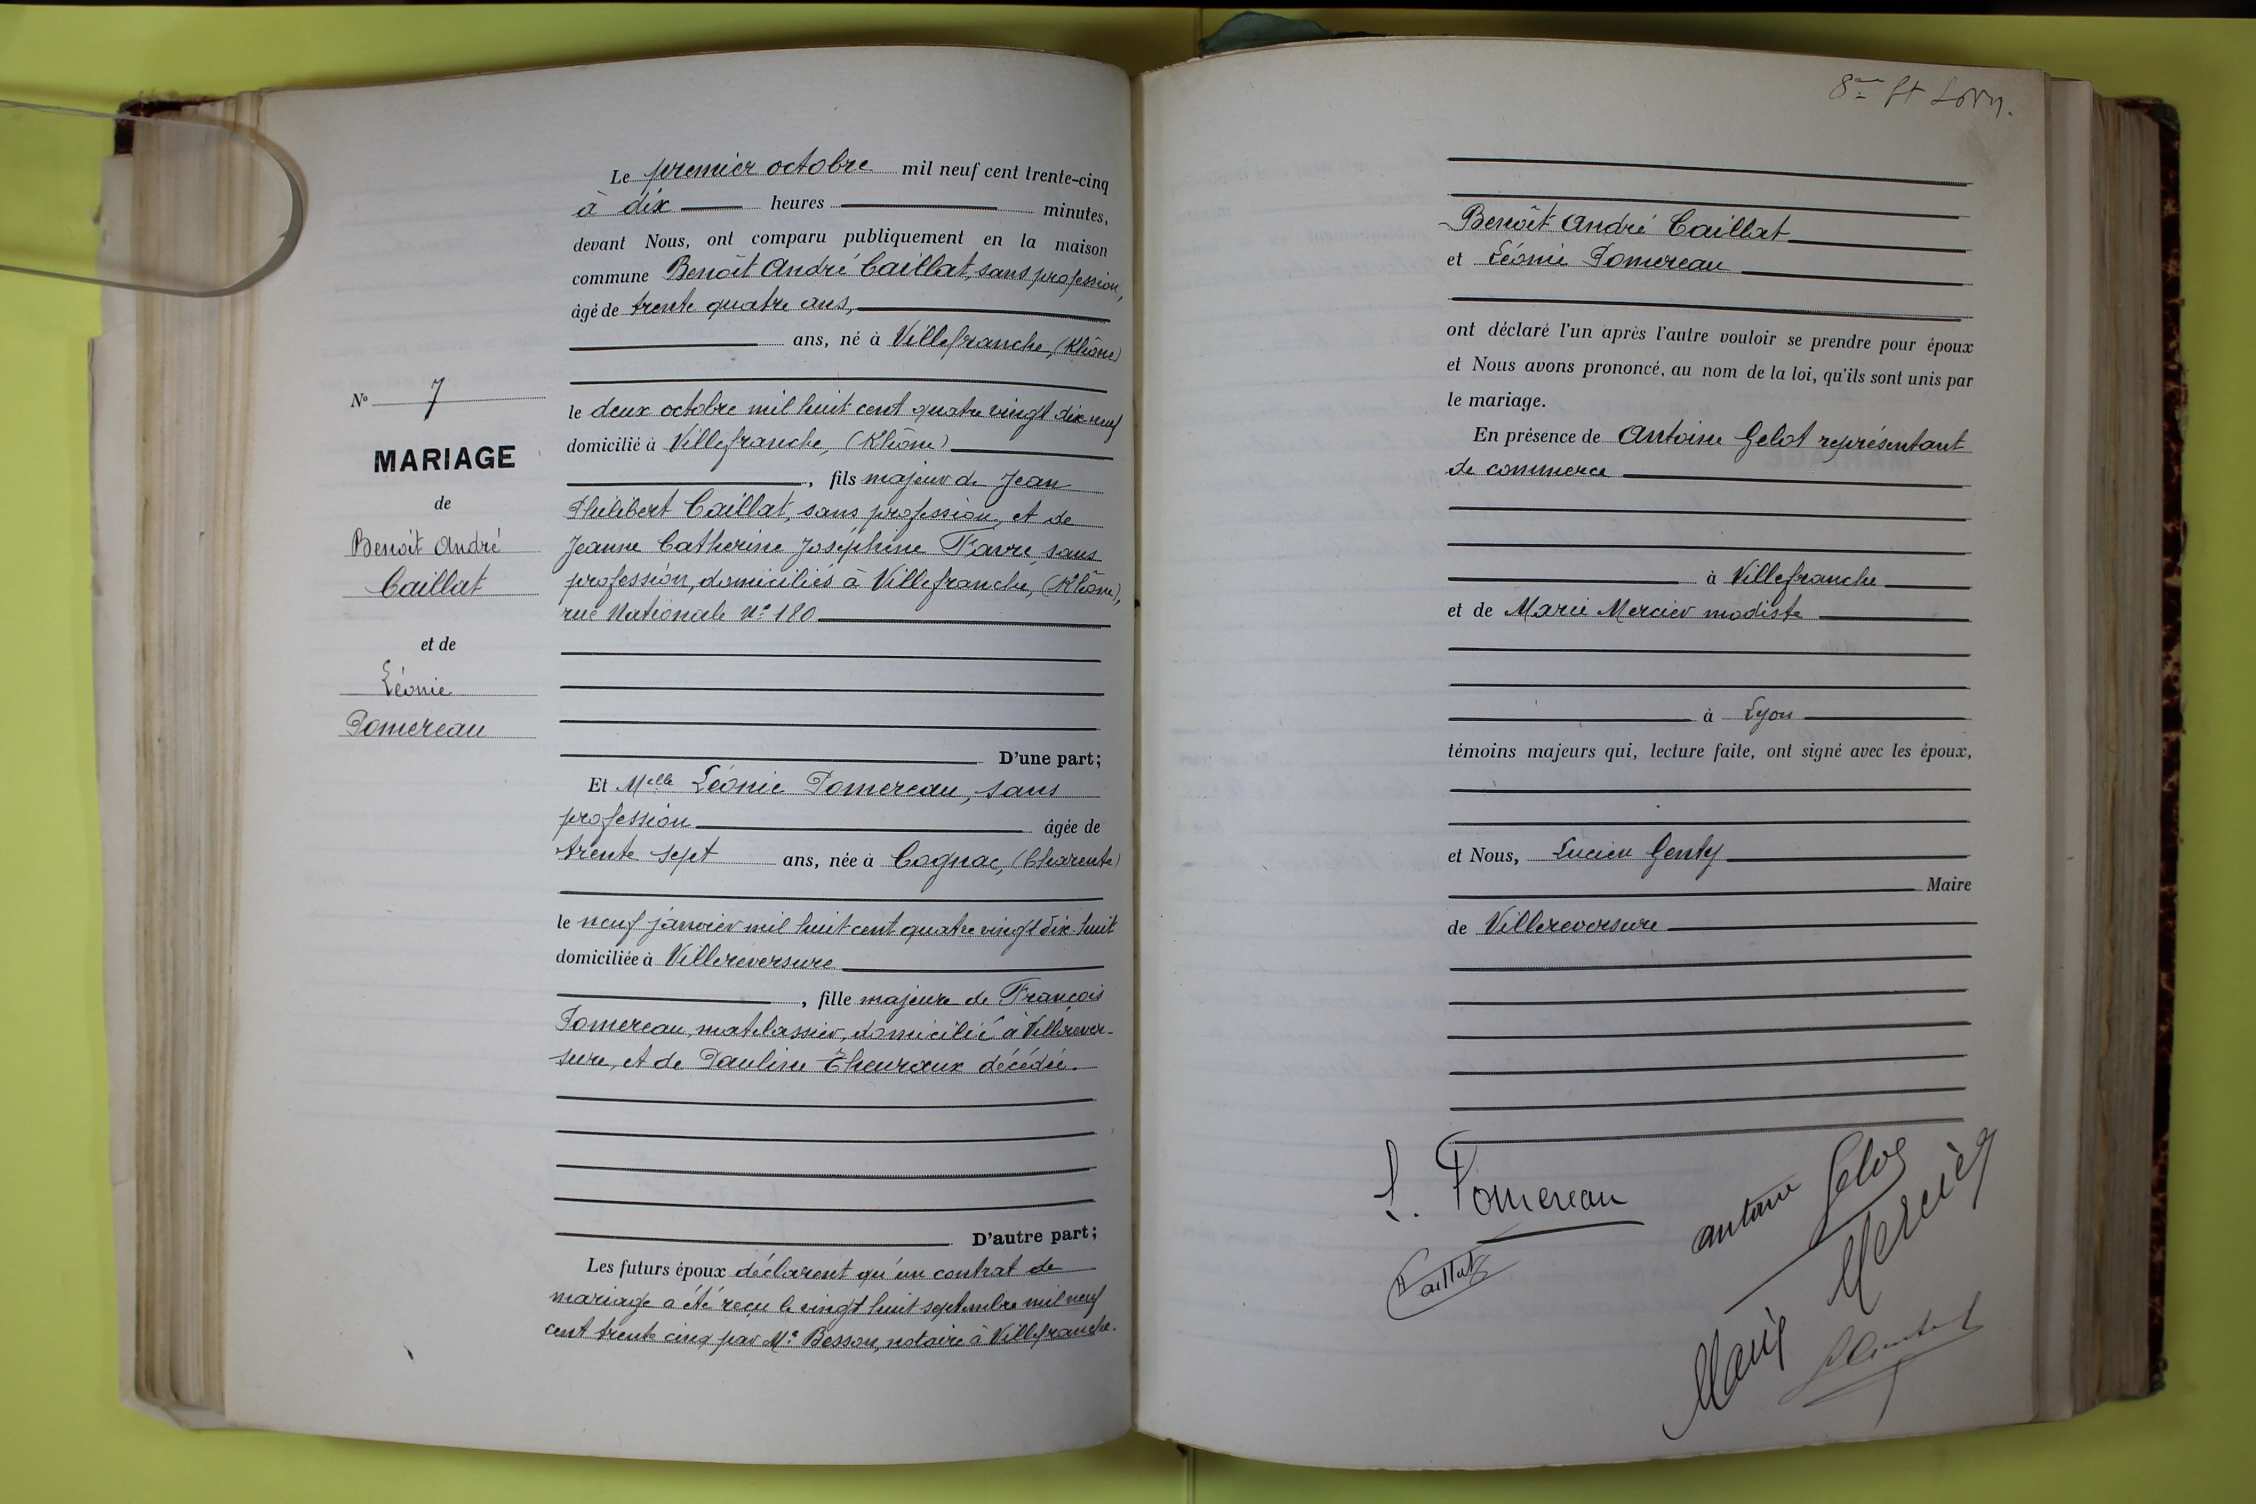 Le premier octobre mil neuf cent trente-cinq
à dix heures minutes,
devant Nous, ont comparu publiquement en la maison
commune Benoît André Caillat, sans profession,
âgé de trente quatre ans,
ans, né à Villefranche, (Rhône)
le deux octobre mil huit cent quatre vingt dix neuf
domicilié à Villefranche, (Rhône)
, fils majeur de Jean
Philibert Caillat, sans profession, et de
Jeanne Catherine Joséphine Favre, sans
profession, domiciliés à Villefranche, (Rhône),
rue Nationale N° 180
D'une part;
N° 7
MARIAGE
de
Benoît André
Caillat
et de
Léonie
Pomereau
Et Melle Léonie Pomereau, sans
profession âgée de
trente sept ans, née à Cognac, (Charente)
le neuf janvier mil huit cent quatre vingt dix-huit
domiciliée à Villereversure
, fille majeure de François
Pomereau, matelassier, domicilié à Villerever-
sure, et de Pauline Theuraux décédée.
D'autre part;
Les futurs époux déclarent qu'un contrat de
mariage a été reçu le vingt huit septembre mil neuf
cent trente cinq par Me Besson, notaire à Villefranche.
Benoît André Caillat
et Léonie Pomereau
ont déclaré l'un après l'autre vouloir se prendre pour époux
et Nous avons prononcé, au nom de la loi, qu'ils sont unis par
le mariage.
En présence de Antoine Gelot représentant
de commerce
à Villefranche
et de Marie Mercier modiste
à Lyon
témoins majeurs qui, lecture faite, ont signé avec les époux,
et Nous, Lucien Genty
Maire
de Villereversure
L. Pomereau
Caillat
antoine Gelot
Marie Mercier